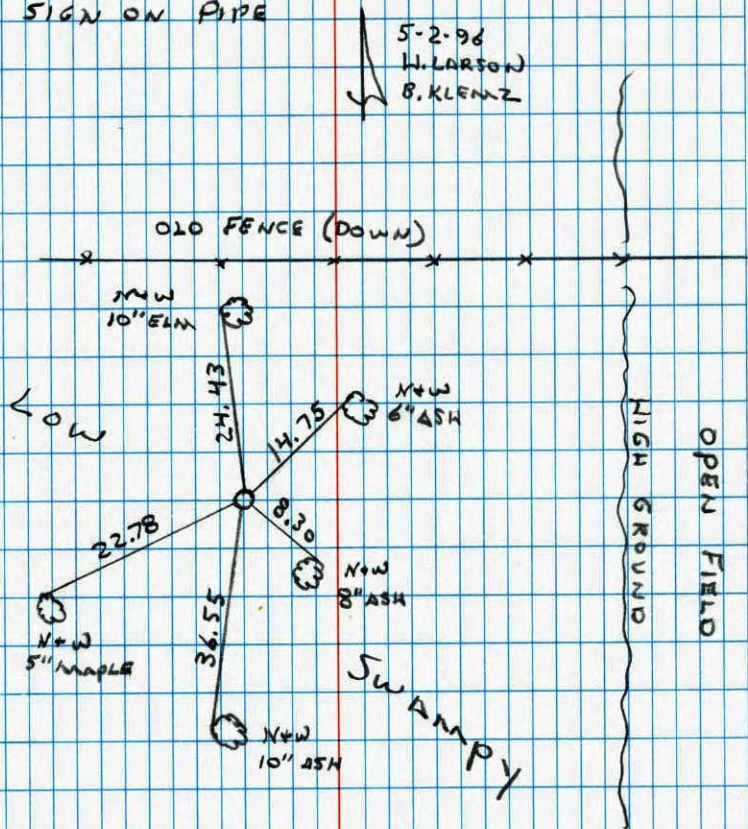 SIGN ON PIPE
5-2-96
W. LARSON
B. KLEMZ
OLD FENCE (DOWN)
N+W
10" ELM
24.43
N+W
6" ASH
14.75
LOW
8.30
N+W
8" ASH
22.78
N+W
5" MAPLE
36.55
N+W
10" ASH
SWAMPY
HIGH GROUND
OPEN FIELD